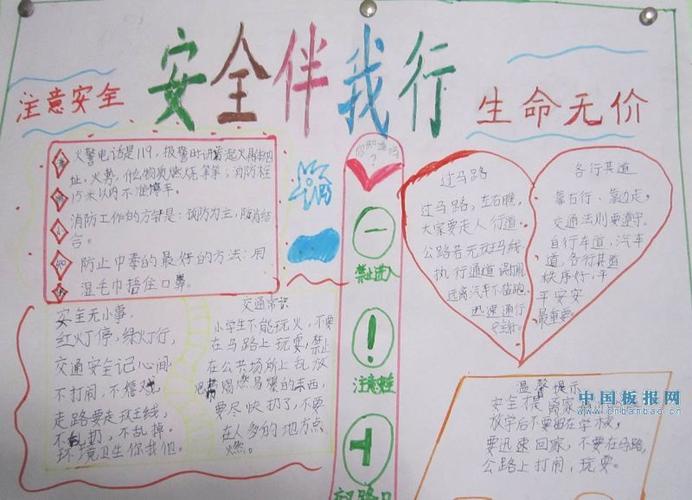 安全伴我行
注意安全
生命无价
火警电话是119，报警时讲
址，火势，什么物质燃烧等等；消防栓
15米以内不准停车。
消防工作的方针是：预防为主，防消结
合。
防止中毒的最好的方法：用
湿毛巾捂住口鼻。
安全无小事，
红灯停，绿灯行，
交通安全记心间
不打闹，不嬉戏
走路要走斑马线
不乱扔，不乱掉。
环境卫生你我他。
交通常识
小学生不能玩火，不要
在马路上玩耍，禁止
在公共场所上乱放
易燃易爆的东西，
要尽快扔了，不要
在人多的地方点
燃。
？
禁止进入
注意
过马路
过马路，左右瞧，
大家要走人行道。
公路若无斑马线
执行通道
远离汽车不
迅速通行
各行其道
靠右行、靠边走。
交通法则要遵守。
自行车道，汽车
道，各行其道
秩序好，平
平安安
最重要
温馨提示
放学后不要留在学校，
要迅速回家，不要在马路，
公路上打闹，玩耍。
中国板报网
www.cnbanbao.cn